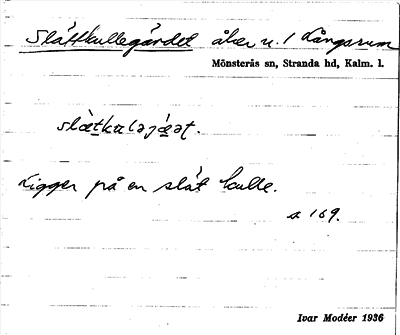 Slättkullegärdet åker u. / Långarum
Mönsterås sn, Stranda hd, Kalm. l.
Ligger på en slät kulle.
s. 169.
Ivar Modéer 1936